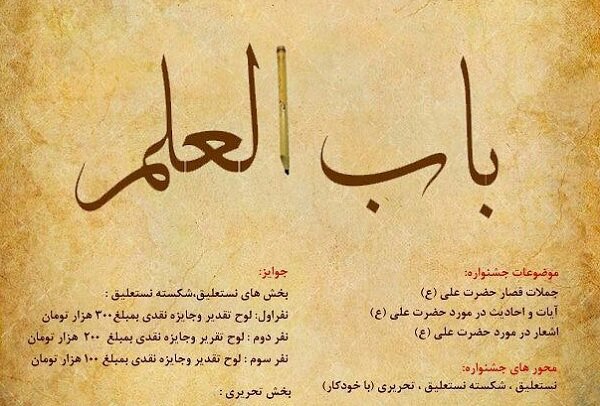 باب العلم
موضوعات جشنواره:
جملات قصار حضرت علی (ع)
آیات و احادیث در مورد حضرت علی (ع)
اشعار در مورد حضرت علی (ع)
محور های جشنواره:
نستعلیق ، شکسته نستعلیق ، تحریری (با خودکار)
جوایز:
بخش های نستعلیق،شکسته نستعلیق :
نفراول: لوح تقدیر وجایزه نقدی بمبلغ۳۰۰ هزار تومان
نفر دوم : لوح تقریر وجایزه نقدی بمبلغ ۲۰۰ هزار تومان
نفر سوم : لوح تقدیر وجایزه نقدی بمبلغ ۱۰۰ هزار تومان
بخش تحریری :